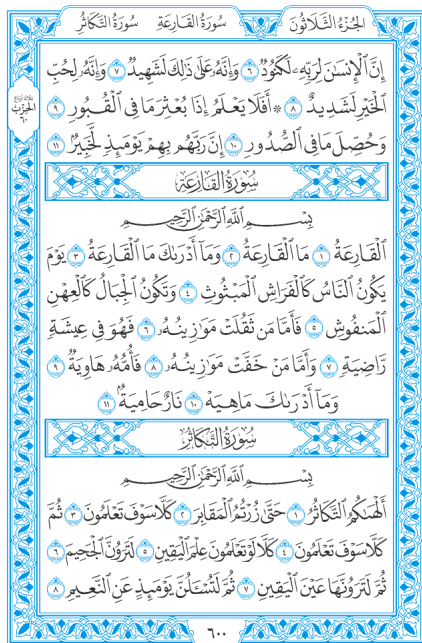 الجُزْءُ الثَّلَاثُونَ سُورَةُ القَارِعَةِ سُورَةُ التَّكَاثُرِ
إِنَّ ٱلْإِنسَٰنَ لِرَبِّهِۦ لَكَنُودٌ ٦ وَإِنَّهُۥ عَلَىٰ ذَٰلِكَ لَشَهِيدٌ ٧ وَإِنَّهُۥ لِحُبِّ
ٱلْخَيْرِ لَشَدِيدٌ ٨ ۞ أَفَلَا يَعْلَمُ إِذَا بُعْثِرَ مَا فِى ٱلْقُبُورِ ٩
وَحُصِّلَ مَا فِى ٱلصُّدُورِ ١٠ إِنَّ رَبَّهُم بِهِمْ يَوْمَئِذٍ لَّخَبِيرٌۢ ١١
الحِزْبِ
٦٠
سُورَةُ القَارِعَةِ
بِسْمِ ٱللَّهِ ٱلرَّحْمَٰنِ ٱلرَّحِيمِ
ٱلْقَارِعَةُ ١ مَا ٱلْقَارِعَةُ ٢ وَمَآ أَدْرَىٰكَ مَا ٱلْقَارِعَةُ ٣ يَوْمَ
يَكُونُ ٱلنَّاسُ كَٱلْفَرَاشِ ٱلْمَبْثُوثِ ٤ وَتَكُونُ ٱلْجِبَالُ كَٱلْعِهْنِ
ٱلْمَنفُوشِ ٥ فَأَمَّا مَن ثَقُلَتْ مَوَٰزِينُهُۥ ٦ فَهُوَ فِى عِيشَةٍ
رَّاضِيَةٍ ٧ وَأَمَّا مَنْ خَفَّتْ مَوَٰزِينُهُۥ ٨ فَأُمُّهُۥ هَاوِيَةٌ ٩
وَمَآ أَدْرَىٰكَ مَا هِيَهْ ١٠ نَارٌ حَامِيَةٌۢ ١١
سُورَةُ التَّكَاثُرِ
بِسْمِ ٱللَّهِ ٱلرَّحْمَٰنِ ٱلرَّحِيمِ
أَلْهَىٰكُمُ ٱلتَّكَاثُرُ ١ حَتَّىٰ زُرْتُمُ ٱلْمَقَابِرَ ٢ كَلَّا سَوْفَ تَعْلَمُونَ ٣ ثُمَّ
كَلَّا سَوْفَ تَعْلَمُونَ ٤ كَلَّا لَوْ تَعْلَمُونَ عِلْمَ ٱلْيَقِينِ ٥ لَتَرَوُنَّ ٱلْجَحِيمَ ٦
ثُمَّ لَتَرَوُنَّهَا عَيْنَ ٱلْيَقِينِ ٧ ثُمَّ لَتُسْـَٔلُنَّ يَوْمَئِذٍ عَنِ ٱلنَّعِيمِ ٨
٦٠٠